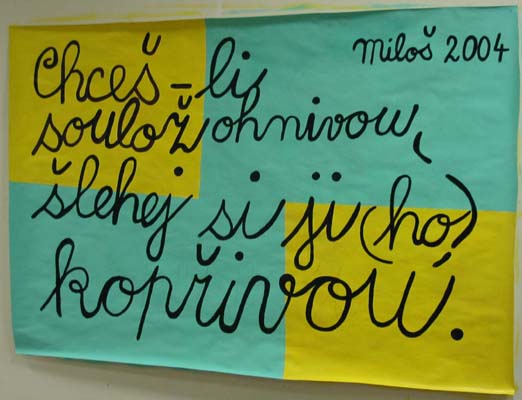 Miloš 2004
Chceš-li
soulož ohnivou,
šlehej si ji (ho)
kopřivou.